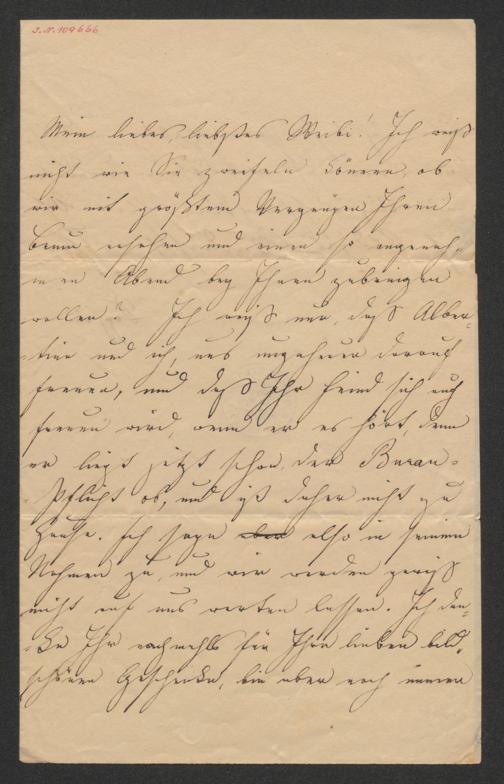 J. N. 109666
Mein liebes, liebstes Weibi! Ich weiß
nicht wie Sie zweifeln können, ob
wir mit größtem Vergnügen Ihren
Baum ansehen und einen so angeneh-
men Abend bey Ihnen zubringen
wollen? Ich weiß nur, daß Alber-
tine und ich, uns ungeheuer darauf
freuen, und daß Ihr Freund sich auch
freuen wird, wenn er es hört, denn
er liegt jetzt schon der Bureau-
Pflicht ob, und ist daher nicht zu
Hause. Ich sage aber also in seinem
Nahmen zu, und wir werden gewiß
nicht auf uns warten lassen. Ich dan-
ke Ihr nochmahls für Ihre lieben bild-
schönen Geschenke, bin aber noch immer